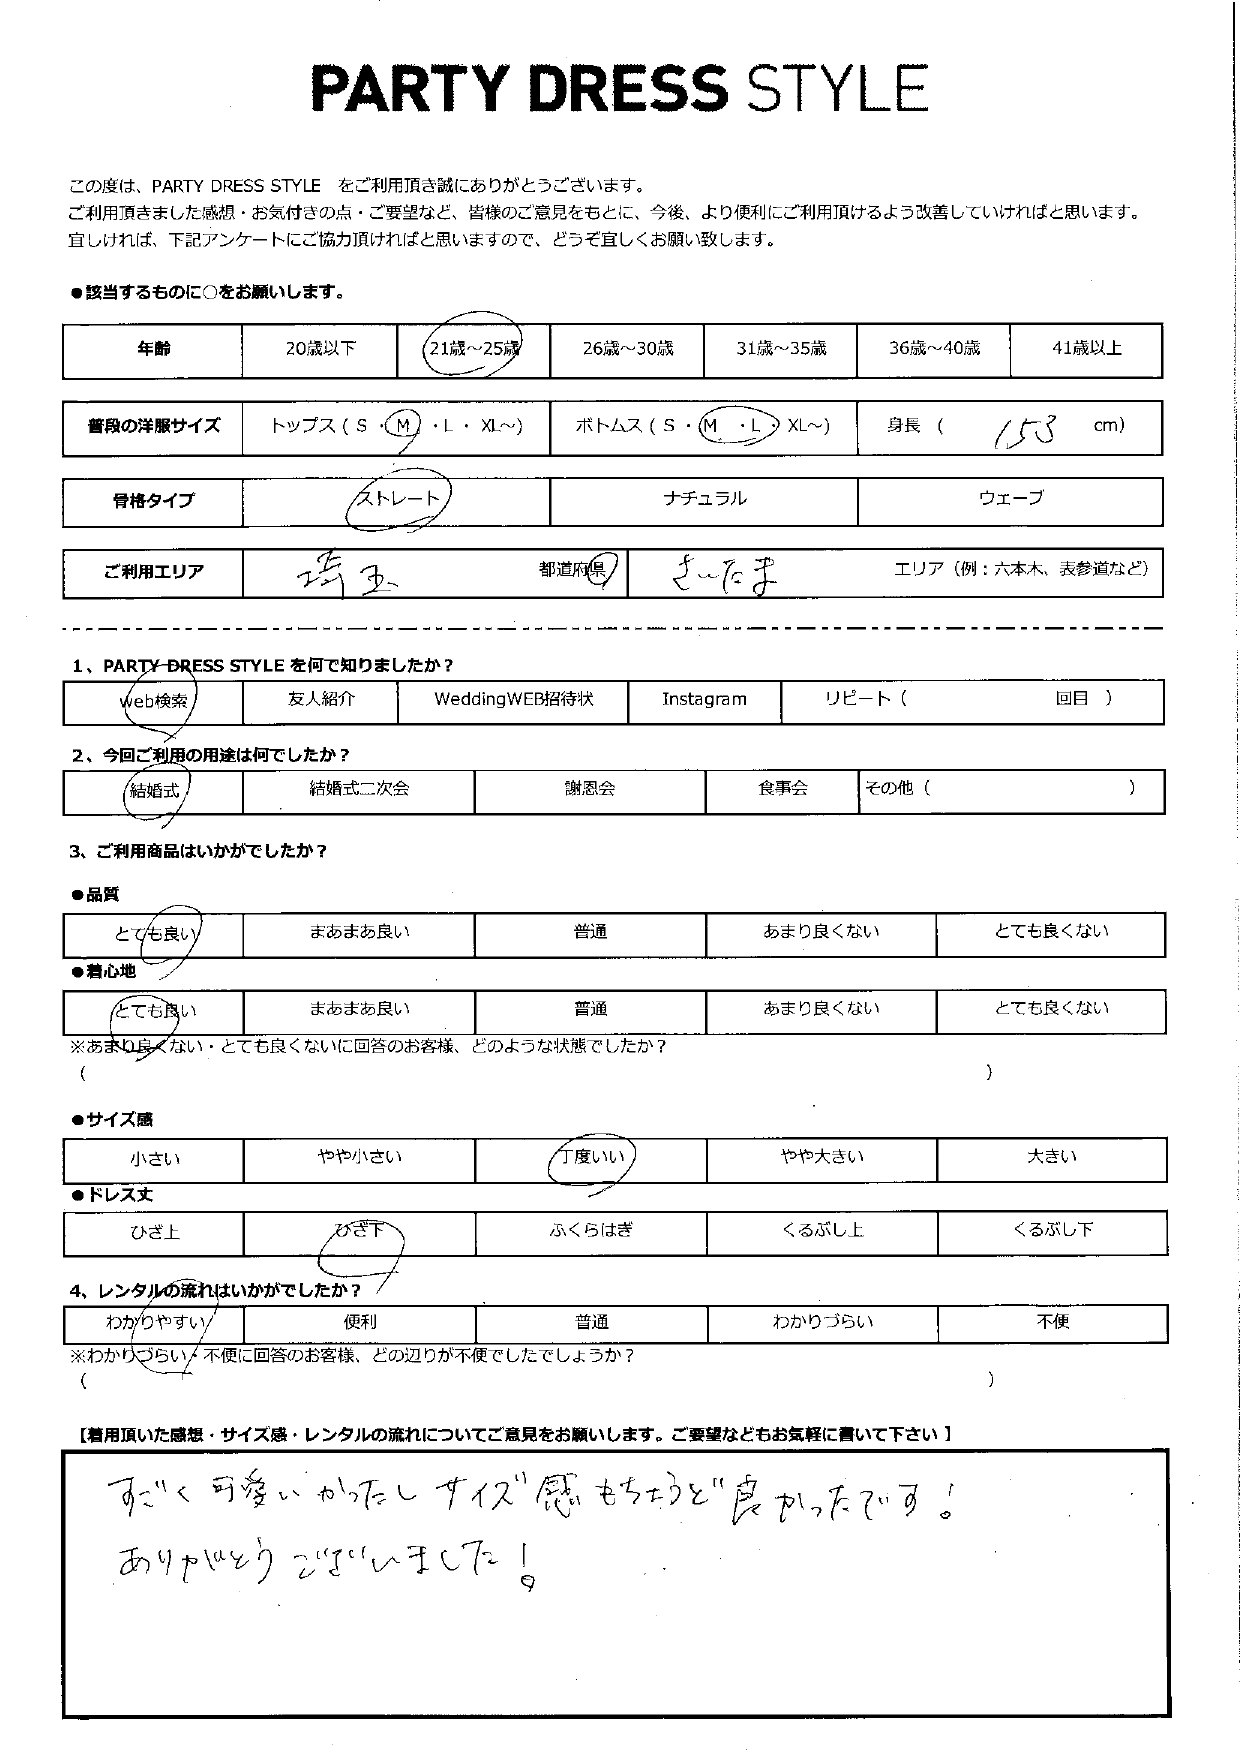 PARTY DRESS STYLE
この度は、PARTY DRESS STYLE　をご利用頂き誠にありがとうございます。
ご利用頂きました感想・お気付きの点・ご要望など、皆様のご意見をもとに、今後、より便利にご利用頂けるよう改善していければと思います。
宜しければ、下記アンケートにご協力頂ければと思いますので、どうぞ宜しくお願い致します。
●該当するものに○をお願いします。
年齢 20歳以下 21歳～25歳 26歳～30歳 31歳～35歳 36歳～40歳 41歳以上
普段の洋服サイズ トップス ( S ・ M ・L ・ XL～) ボトムス ( S ・ M ・L ・ XL～) 身長 ( 153 cm)
骨格タイプ ストレート ナチュラル ウェーブ
ご利用エリア 埼玉 都道府県 さいたま エリア（例：六本木、表参道など）
1、PARTY DRESS STYLE を何で知りましたか？
Web検索 友人紹介 WeddingWEB招待状 Instagram リピート（ 回目 ）
2、今回ご利用の用途は何でしたか？
結婚式 結婚式二次会 謝恩会 食事会 その他（ ）
3、ご利用商品はいかがでしたか？
●品質
とても良い まあまあ良い 普通 あまり良くない とても良くない
●着心地
とても良い まあまあ良い 普通 あまり良くない とても良くない
※あまり良くない・とても良くないに回答のお客様、どのような状態でしたか？
（ ）
●サイズ感
小さい やや小さい 丁度いい やや大きい 大きい
●ドレス丈
ひざ上 ひざ下 ふくらはぎ くるぶし上 くるぶし下
4、レンタルの流れはいかがでしたか？
わかりやすい 便利 普通 わかりづらい 不便
※わかりづらい・不便に回答のお客様、どの辺りが不便でしたでしょうか？
（ ）
【着用頂いた感想・サイズ感・レンタルの流れについてご意見をお願いします。ご要望などもお気軽に書いて下さい】
すごく可愛いかったしサイズ感もちょうど良かったです！
ありがとうございました！